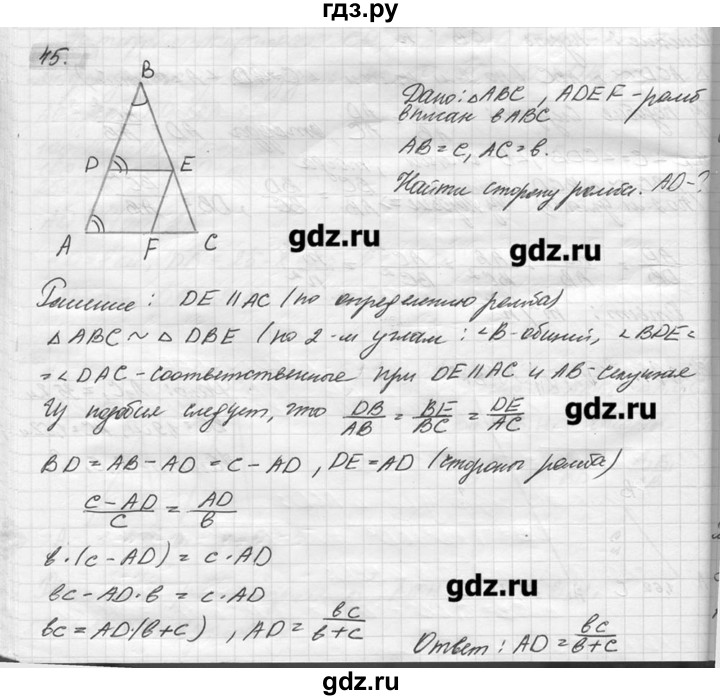 гдз.ру
45.
B
Дано: △ABC, ADEF - ромб
вписан в ABC
AB = c, AC = в.
D E
Найти сторону ромба. AD - ?
A F C
gdz.ru
Решение: DE || AC (по определению ромба)
△ABC ~ △DBE (по 2-м углам: ∠B-общий, ∠BDE =
= ∠DAC - соответственные при DE || AC и AB - секущая
Из подобия следует, что DB/AB = BE/BC = DE/AC
gdz.ru
BD = AB - AD = c - AD, DE = AD (стороны ромба)
c - AD/c = AD/в
в·(c - AD) = c·AD
gdz.ru
вc - AD·в = c·AD
вc = AD(в+c), AD = вc/в+c
Ответ: AD = вc/в+c